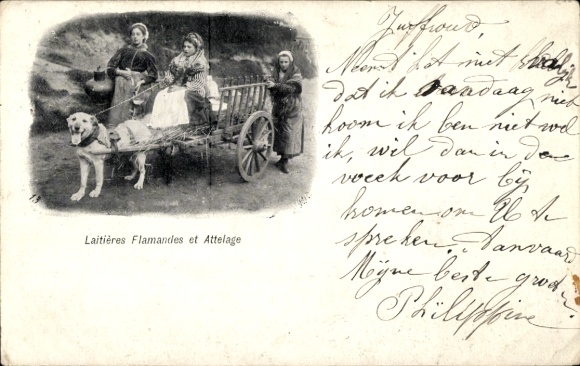 Laitières Flamandes et Attelage
Juffrouw,
Neemt het niet
dat ik vandaag niet
koom ik ben niet wel
ik, wil dan in de
week voor bij
komen om U te
spreken. Aanvaard
Mijne beste groeten.
Philippine